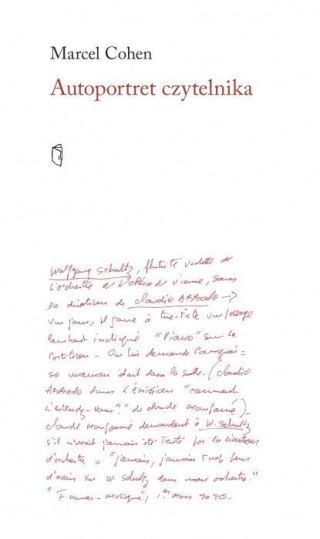 Marcel Cohen
Autoportret czytelnika
Wolfgang Schultz, flûtiste vedette de
l'orchestre de l'Opéra de Vienne, sous
la direction de Claudio Abbado →
un jour, il joue à tue-tête un passage
pourtant indiqué "Piano" sur la
partition. On lui demande pourquoi =
sa maman était dans la salle. (Claudio
Abbado dans l'émission "comment
l'entendez-vous?" de Claude Maupomé).
Claude Maupomé demandant à W. Schultz
s'il n'avait jamais été par la direction
d'orchestre = "jamais, jamais, trop peur
d'avoir un W. Schultz dans mon orchestre."
"France-Musique", 1er Mars